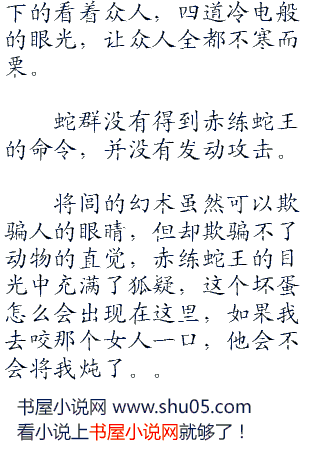 下的看着众人，四道冷电般
的眼光，让众人全都不寒而
栗。
蛇群没有得到赤练蛇王
的命令，并没有发动攻击。
将闾的幻术虽然可以欺
骗人的眼睛，但却欺骗不了
动物的直觉，赤练蛇王的目
光中充满了狐疑，这个坏蛋
怎么会出现在这里，如果我
去咬那个女人一口，他会不
会将我炖了。。
书屋小说网 www.shu05.com
看小说上书屋小说网就够了！